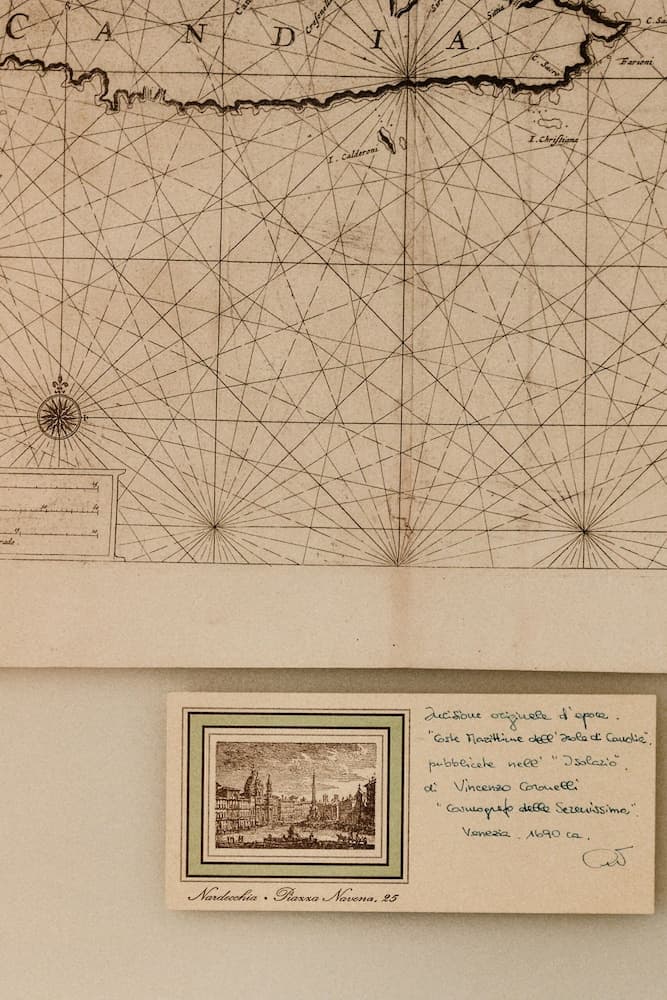 CANDIA.
C. Sacro
Farioni
I. Christiana
I. Calderoni
Incisione originale d'epoca.
"Coste Marittime dell'Isola di Candia".
pubblicate nell' "Isolario".
di Vincenzo Coronelli
"Cosmografo della Serenissima".
Venezia. 1690 ca.
Nardecchia • Piazza Navona, 25